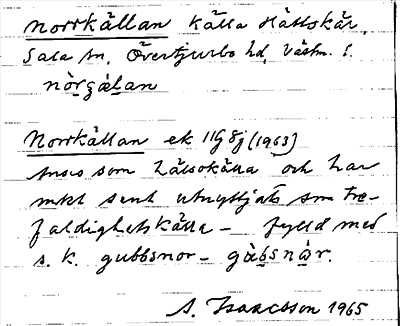 Norrkällan källa Hällskär,
Sala sn, Övertjurbo hd, Västm. l.
nòrgä̀lan
Norrkällan ek 11G8j (1963)
Anses som hälsokälla och har
mkt sent utnyttjats som tre-
faldighetskälla – fylld med
s. k. gubbsnor – gùbsnår.
A. Isaacsson 1965